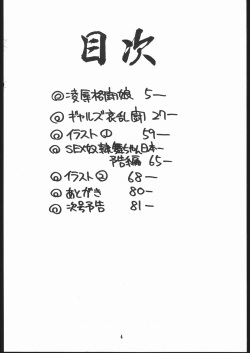 目次
◎凌辱格闘娘 5ー
◎ギャルズ哀乱闘 27ー
◎イラスト① 59ー
◎SEX奴隷舞ちゃん日本一
予告編 65ー
◎イラスト② 68ー
◎あとがき 80ー
◎次号予告 81ー
4